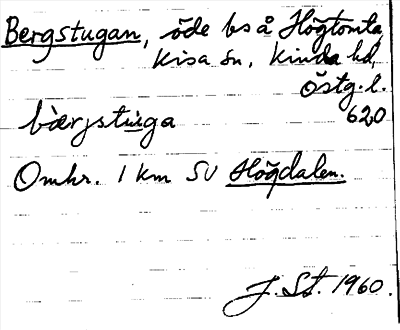 Bergstugan, öde bs å Högtomta,
Kisa sn, Kinda hd,
Östg. l.
620
bàrjstuga
Omkr. 1 km SV Högdalen.
J. St. 1960.